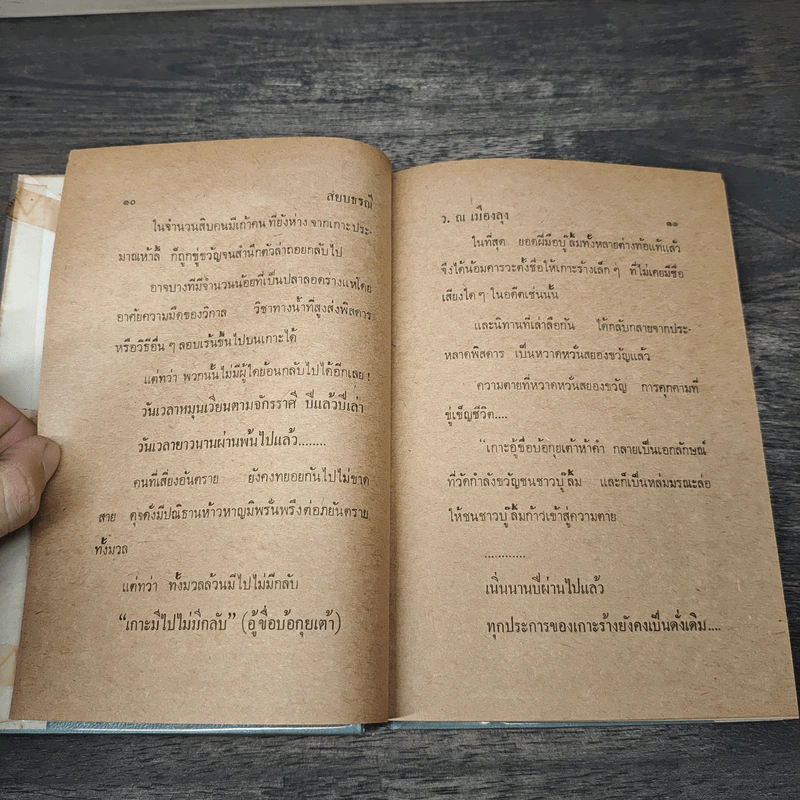 ๑๐
สยบธรณี
ในจำนวนสิบคนมีเก้าคน ที่ยังห่าง จากเกาะ ประ-
มาณห้าลี้ ก็ถูกขู่ขวัญจนสำนึกตัวล่าถอยกลับไป
อาจบางทีมีจำนวนน้อยที่เป็นปลาลอดร่างแหโดย
อาศัยความมืดของวิกาล วิชาทางน้ำที่สูงส่งพิสดาร
หรือวิธีอื่น ๆ ลอบเร้นขึ้นไปบนเกาะได้
แต่ทว่า พวกนั้นไม่มีผู้ใดย้อนกลับไปได้อีกเลย !
วันเวลาหมุนเวียนตามจักรราศี ปีแล้วปีเล่า
วันเวลายาวนานผ่านพ้นไปแล้ว........
คนที่เสี่ยงอันตราย ยังคงทยอยกันไปไม่ขาด
สาย ดุจดั่งมีปณิธานห้าวหาญมิพรั่นพรึงต่อภยันตราย
ทั้งมวล
แต่ทว่า ทั้งมวลล้วนมีไปไม่มีกลับ
“เกาะมีไปไม่มีกลับ” (อู้ขื่อบ้อกุยเต้า)
ว. ณ เมืองลุง
๑๑
ในที่สุด ยอดฝีมือบู๊ลิ้มทั้งหลายต่างท้อแท้แล้ว
จึงได้น้อมคารวะตั้งชื่อให้เกาะร้างเล็ก ๆ ที่ไม่เคยมีชื่อ
เสียงใด ๆ ในอดีตเช่นนั้น
และนิทานที่เล่าลือกัน ได้กลับกลายจากประ-
หลาดพิสดาร เป็นหวาดหวั่นสยองขวัญแล้ว
ความตายที่หวาดหวั่นสยองขวัญ การคุกคามที่
ขู่เข็ญชีวิต....
“เกาะอู้ขื่อบ้อกุยเต้าห้าคำ กลายเป็นเอกลักษณ์
ที่วัดกำลังขวัญชนชาวบู๊ลิ้ม และก็เป็นหล่มมรณะล่อ
ให้ชนชาวบู๊ลิ้มก้าวเข้าสู่ความตาย
............
เนิ่นนานปีผ่านไปแล้ว
ทุกประการของเกาะร้างยังคงเป็นดั่งเดิม....